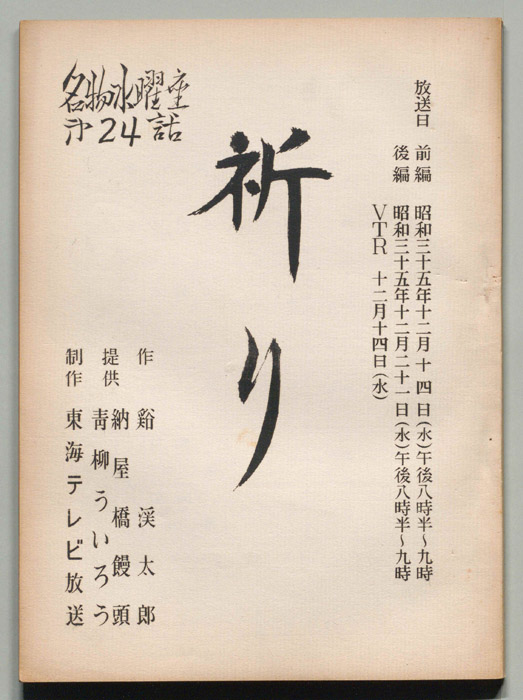 放送日 前編 昭和三十五年十二月十四日(水)午後八時半~九時
後編 昭和三十五年十二月二十一日(水)午後八時半~九時
VTR 十二月十四日(水)
祈り
名物水曜座
第24話
作 谿渓太郎
提供 納屋橋饅頭
青柳ういろう
制作 東海テレビ放送